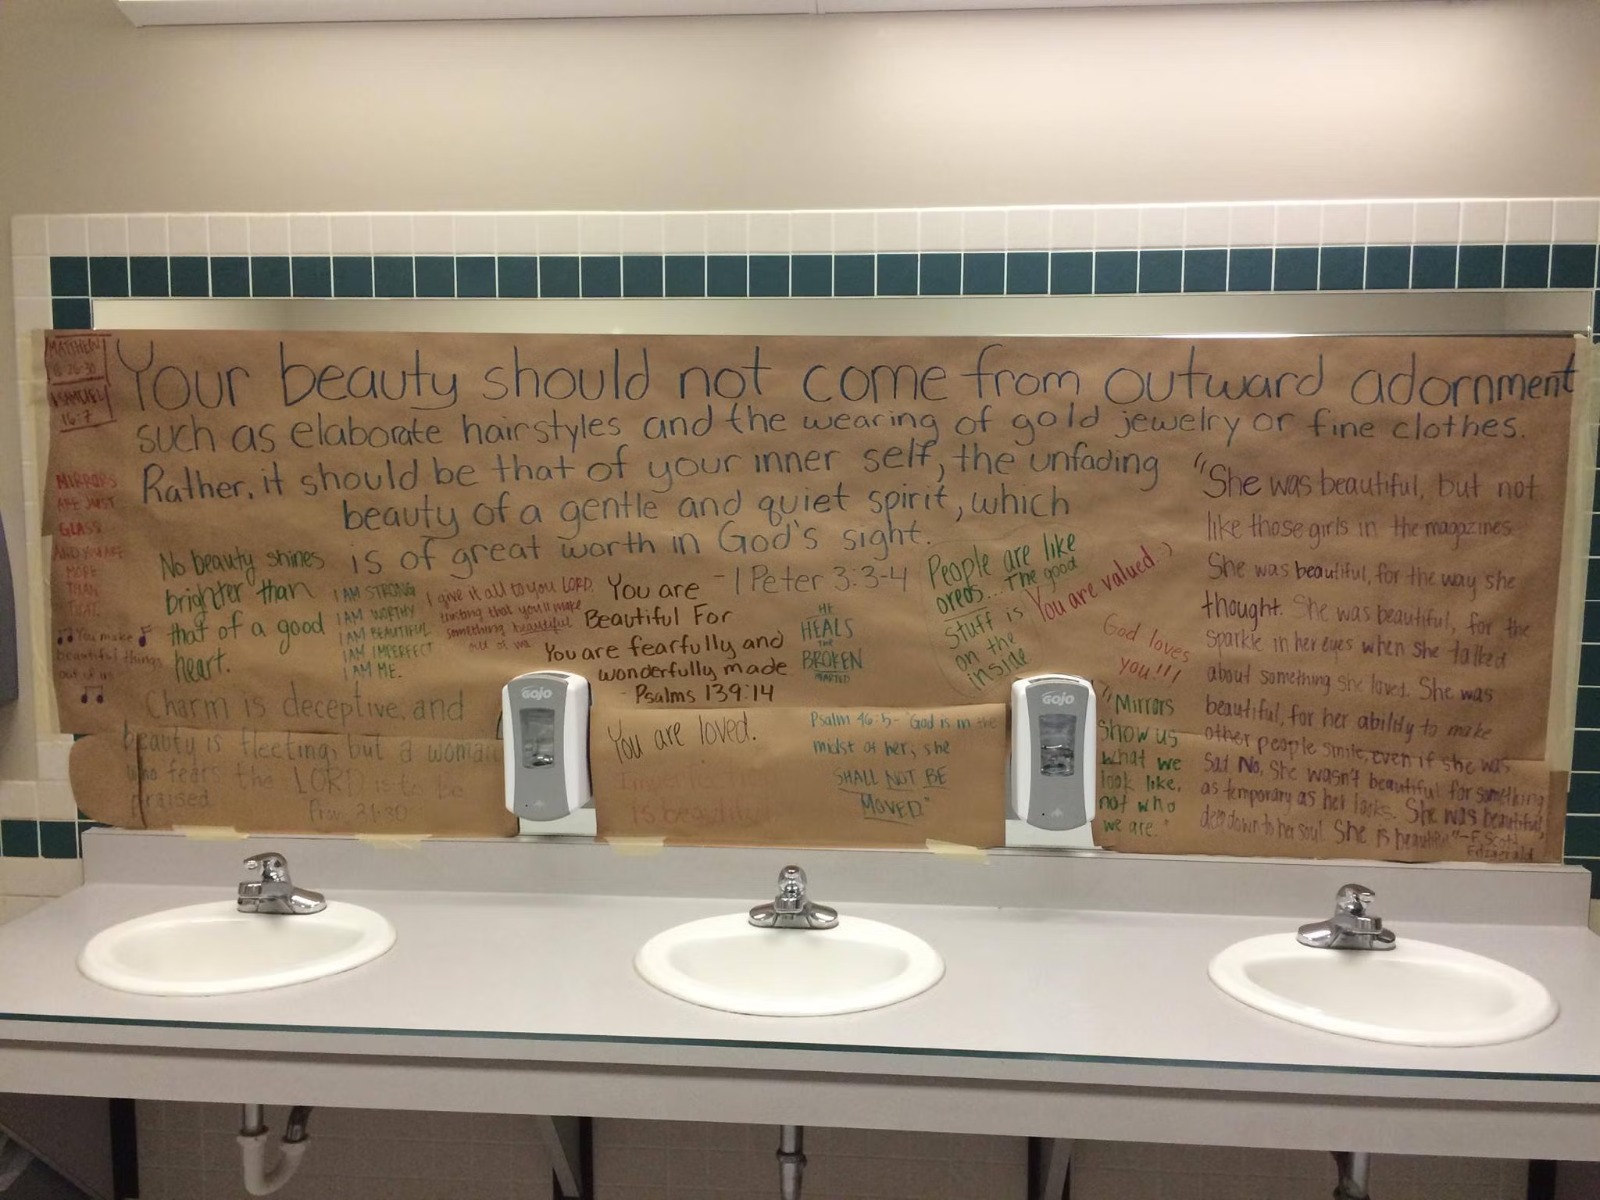 MATTHEW
1 SAMUEL
16:7
Your beauty should not come from outward adornment
such as elaborate hairstyles and the wearing of gold jewelry or fine clothes.
Rather, it should be that of your inner self, the unfading
beauty of a gentle and quiet spirit, which
is of great worth in God's sight.
- 1 Peter 3:3-4
MIRRORS
ARE JUST
GLASS
AND YOU ARE
MORE
THAN
THAT.
You make
beautiful things
out of us
No beauty shines
brighter than
that of a good
heart.
I AM STRONG
I AM WORTHY
I AM BEAUTIFUL
I AM IMPERFECT
I AM ME.
I give it all to you LORD
trusting that you'll make
something beautiful
out of me
You are
Beautiful For
You are fearfully and
wonderfully made
- Psalms 139:14
HE
HEALS
THE
BROKEN
HEARTED
People are like
oreos... The good
stuff is
on the
inside
You are valued :)
God loves
you!!!
"She was beautiful, but not
like those girls in the magazines
She was beautiful, for the way she
thought. She was beautiful, for the
sparkle in her eyes when she talked
about something she loved. She was
beautiful, for her ability to make
other people smile, even if she was
sad. No, she wasn't beautiful for something
as temporary as her looks. She was beautiful,
deep down to her soul. She is beautiful" - F. Scott
Fitzgerald
Charm is deceptive, and
beauty is fleeting; but a woman
who fears the LORD is to be
praised.
Prov. 31:30
GOJO
You are loved.
is beautiful
Psalm 46:5 - "God is in the
midst of her, she
SHALL NOT BE
MOVED"
GOJO
"Mirrors
show us
what we
look like,
not who
we are."